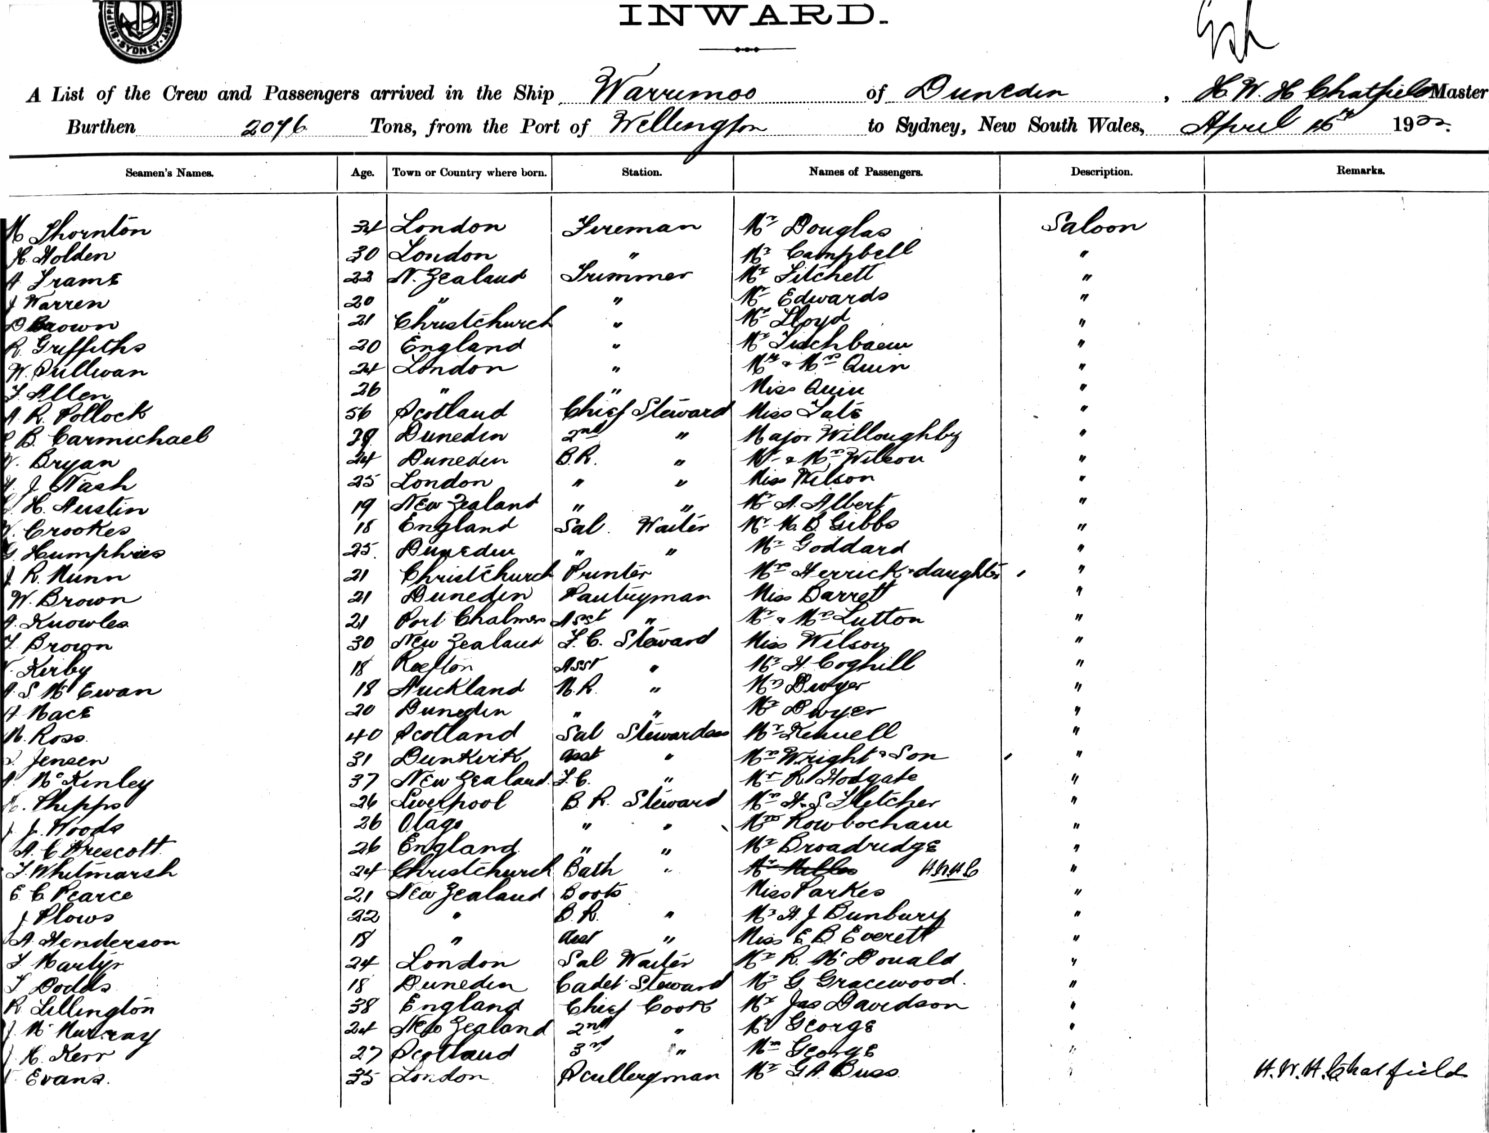 INWARD.
SYDNEY
A List of the Crew and Passengers arrived in the Ship Warrimoo of Dunedin, H. W. H. Chatfield Master
Burthen 2076 Tons, from the Port of Wellington to Sydney, New South Wales, April 1902.
Seamen's Names. Age. Town or Country where born. Station. Names of Passengers. Description. Remarks.
M Thornton 34 London Fireman Mr Douglas Saloon
H Holden 30 London " Mr Campbell "
A Frame 22 N. Zealand Trimmer Mr Fitchett "
J Warren 20 " " Mr Edwards "
D Brown 21 Christchurch " Mr Lloyd "
R Griffiths 20 England " Mr "
W. Sullivan 24 London " Mr & Mrs Quin "
F Allen 26 " " Miss Quin "
A R Pollock 56 Scotland Chief Steward Miss Tate "
B. Carmichael 29 Dunedin 2nd " Major Willoughby "
Bryan 24 Dunedin B.R. " Mr & Mrs Wilson "
J Nash 25 London " " Miss Wilson "
H. Austin 19 New Zealand " " Mr A. Albert "
Crookes 18 England Sal. Waiter Mr B Gibbs "
G Humphries 25 Dunedin " " Mr Goddard "
J R. Nunn 21 Christchurch Printer Mrs Herrick & daughter "
W. Brown 21 Dunedin Pantryman Miss Barrett "
Knowles 21 Port Chalmers Asst " Mr & Mrs Lutton "
F Brown 30 New Zealand F. C. Steward Miss Wilson "
Kirby 18 Reefton Asst " Mr H Coghill "
S. McEwan 18 Auckland B.R. " Mrs Dwyer "
A Mace 20 Dunedin " " Mr Dwyer "
M. Ross 40 Scotland Sal Stewardess Mr "
Jensen 31 Dunkirk Asst " Mrs Wright & Son "
McKinley 37 New Zealand F.C. " Mr R. Hodgate "
Phipps 26 Liverpool B. R. Steward H. S Fletcher "
J. Woods 26 Otago " " Mrs "
A. C Prescott 26 England " " Mr Broadridge "
F. Whitmarsh 24 Christchurch Bath " H.W.H.C "
E C Pearce 21 New Zealand Boots Miss Parkes "
J Plows 22 " B.R. " Mr H. J Bunbury "
A. Henderson 18 " Asst " Miss E B Everett "
F Martyr 24 London Sal Waiter Mr R. McDonald "
F Dodds 18 Dunedin Cadet Steward Mr G Gracewood. "
R Lillington 38 England Chief Cook Mr Jas Davidson "
J McMurray 24 New Zealand 2nd " Mr George "
J H. Kerr 27 Scotland 3rd " Mrs George "
Evans. 35 London Sculleryman Mr G A. Buss " H. W. H. Chatfield